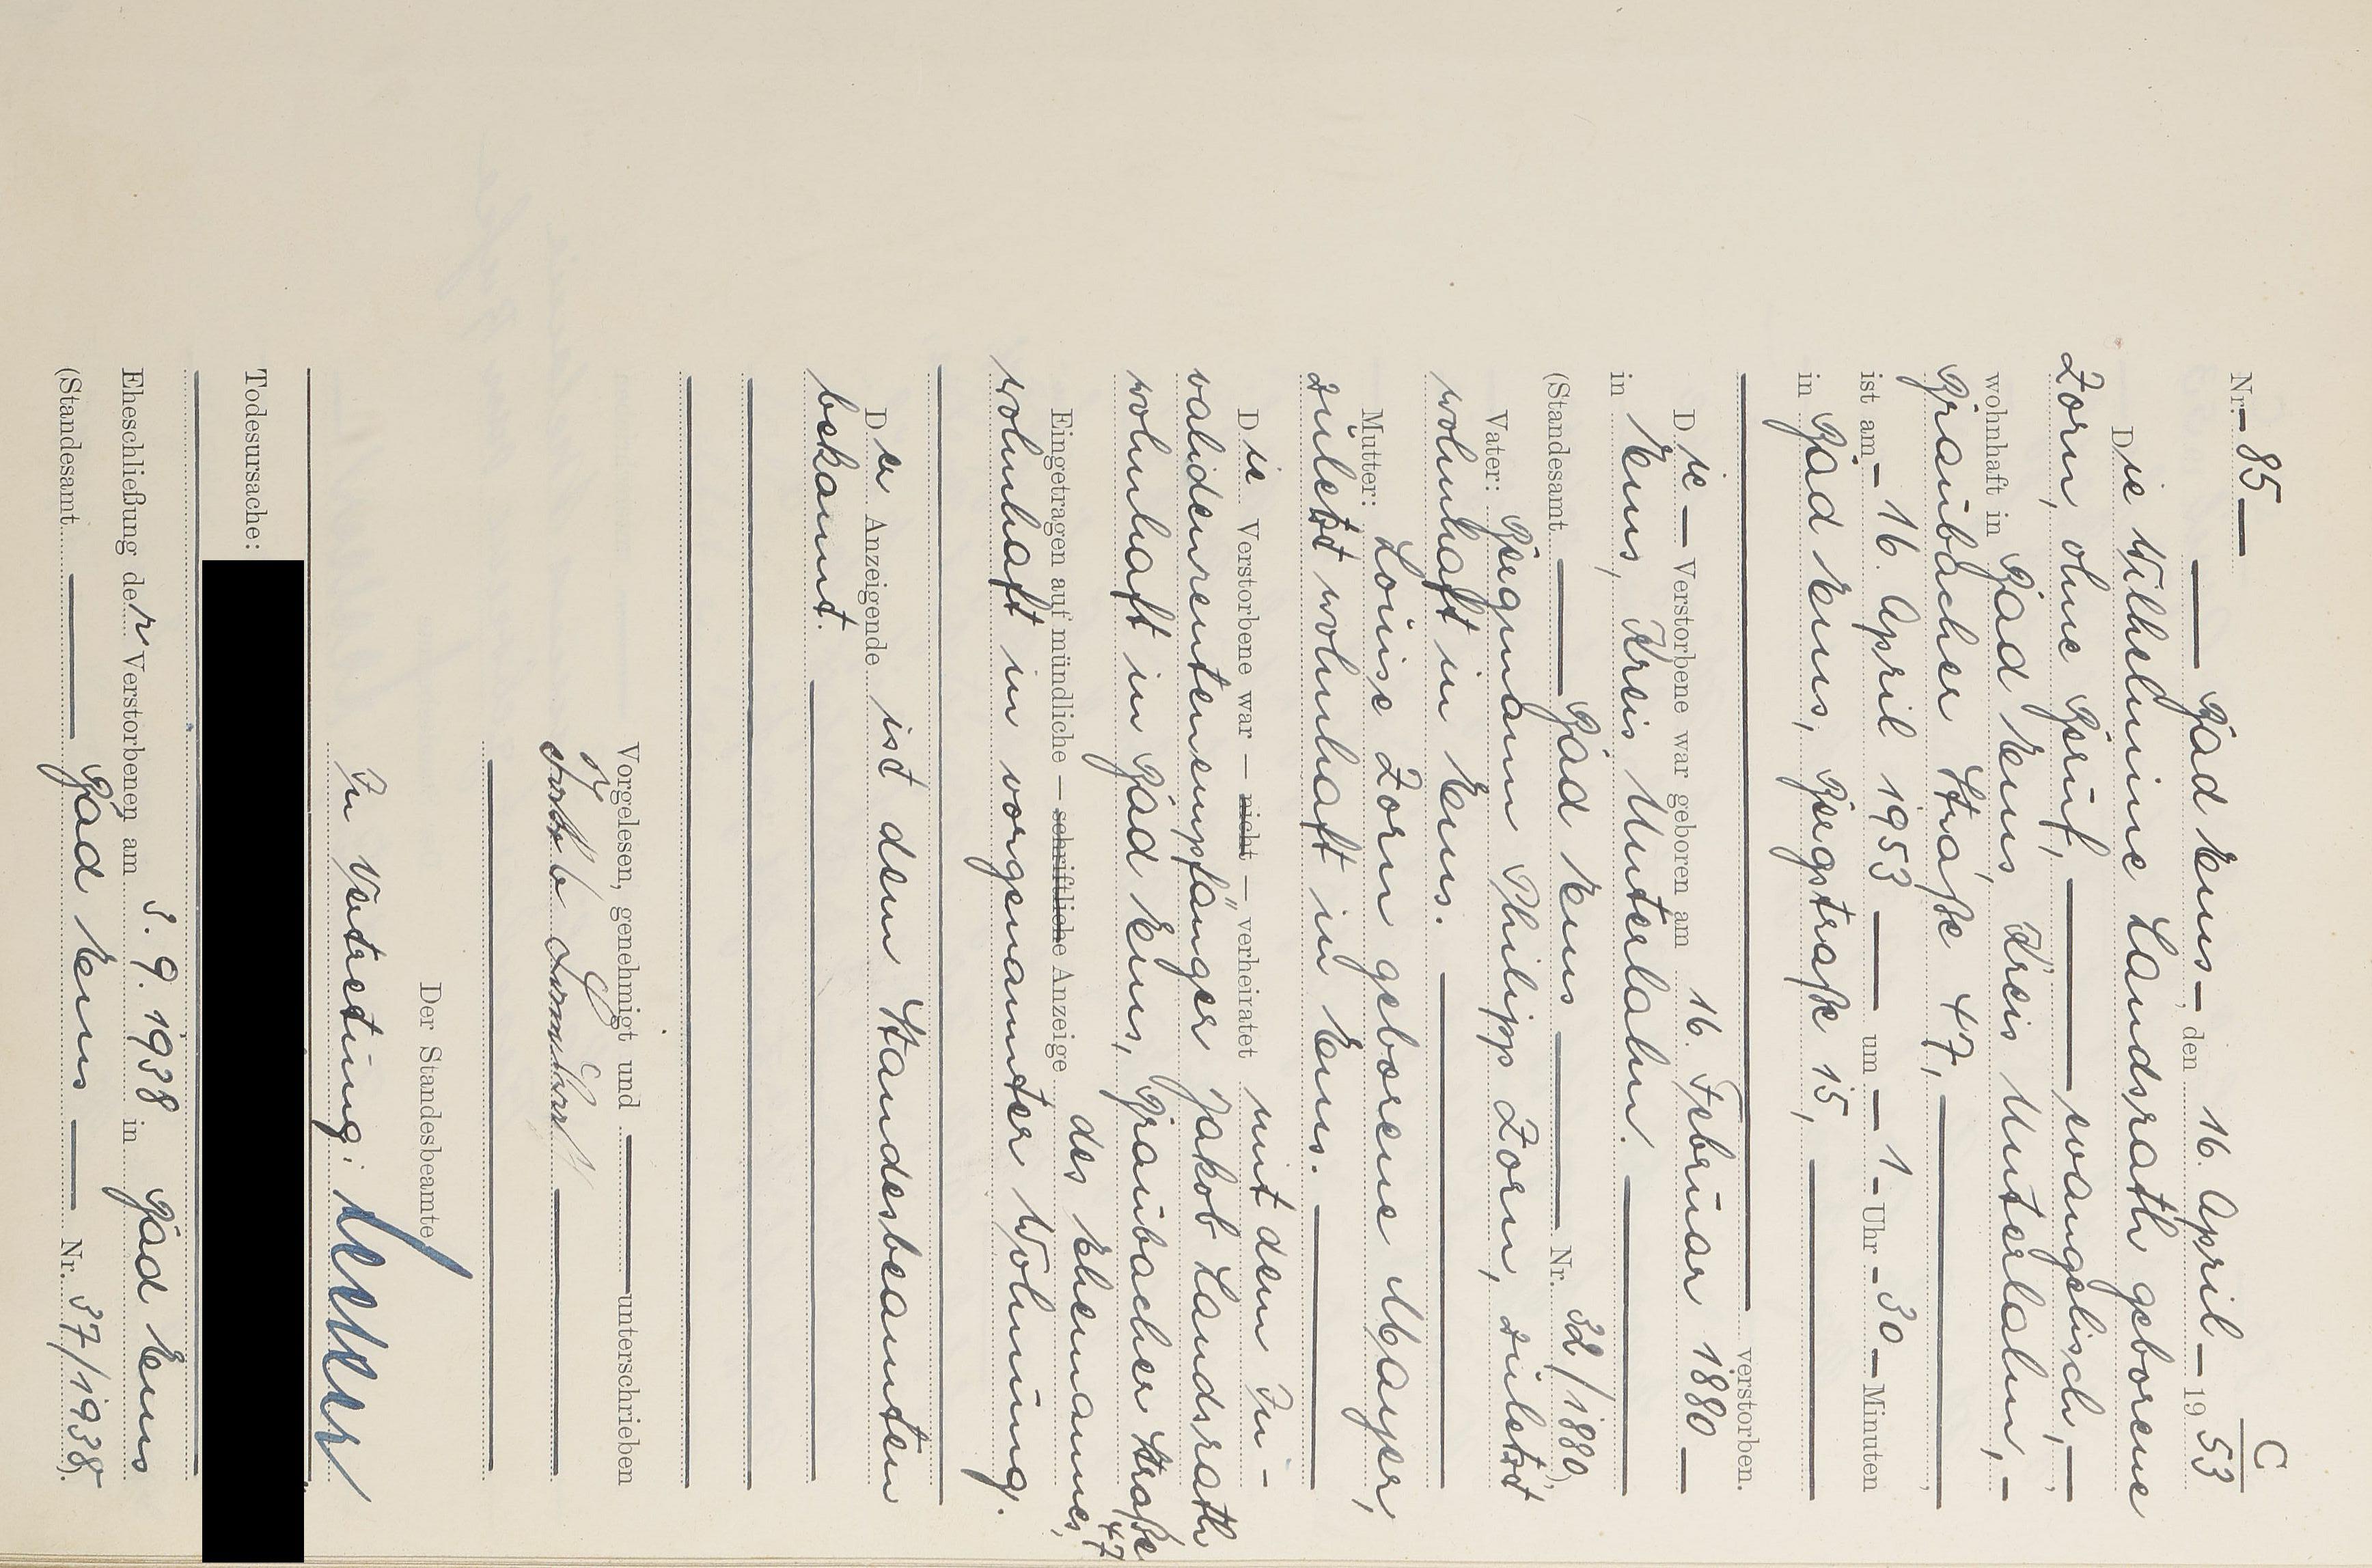 C
Nr. 85
Bad Ems, den 16. April 1953
Die Wilhelmine Landsrath geborene
Zorn, ohne Beruf, evangelisch,
wohnhaft in Bad Ems, Kreis Unterlahn,
Braubacher Straße 47,
ist am 16. April 1953 um 1 Uhr 30 Minuten
in Bad Ems, Bergstraße 15,
verstorben.
Die Verstorbene war geboren am 16. Februar 1880
in Ems, Kreis Unterlahn.
(Standesamt Bad Ems Nr. 32/1880)
Vater: Bergmann Philipp Zorn, zuletzt
wohnhaft in Ems.
Mutter: Louise Zorn geborene Mayer,
zuletzt wohnhaft in Ems.
Die Verstorbene war — nicht — verheiratet mit dem In-
validenrentenempfänger Jakob Landsrath
wohnhaft in Bad Ems, Braubacher Straße 47
Eingetragen auf mündliche — schriftliche Anzeige des Ehemannes,
wohnhaft in vorgenannter Wohnung.
Der Anzeigende ist dem Standesbeamten
bekannt.
Vorgelesen, genehmigt und unterschrieben
Jakob
Der Standesbeamte
In Vertretung:
Todesursache:
Eheschließung der Verstorbenen am 3. 9. 1938 in Bad Ems
(Standesamt Bad Ems Nr. 37/1938).